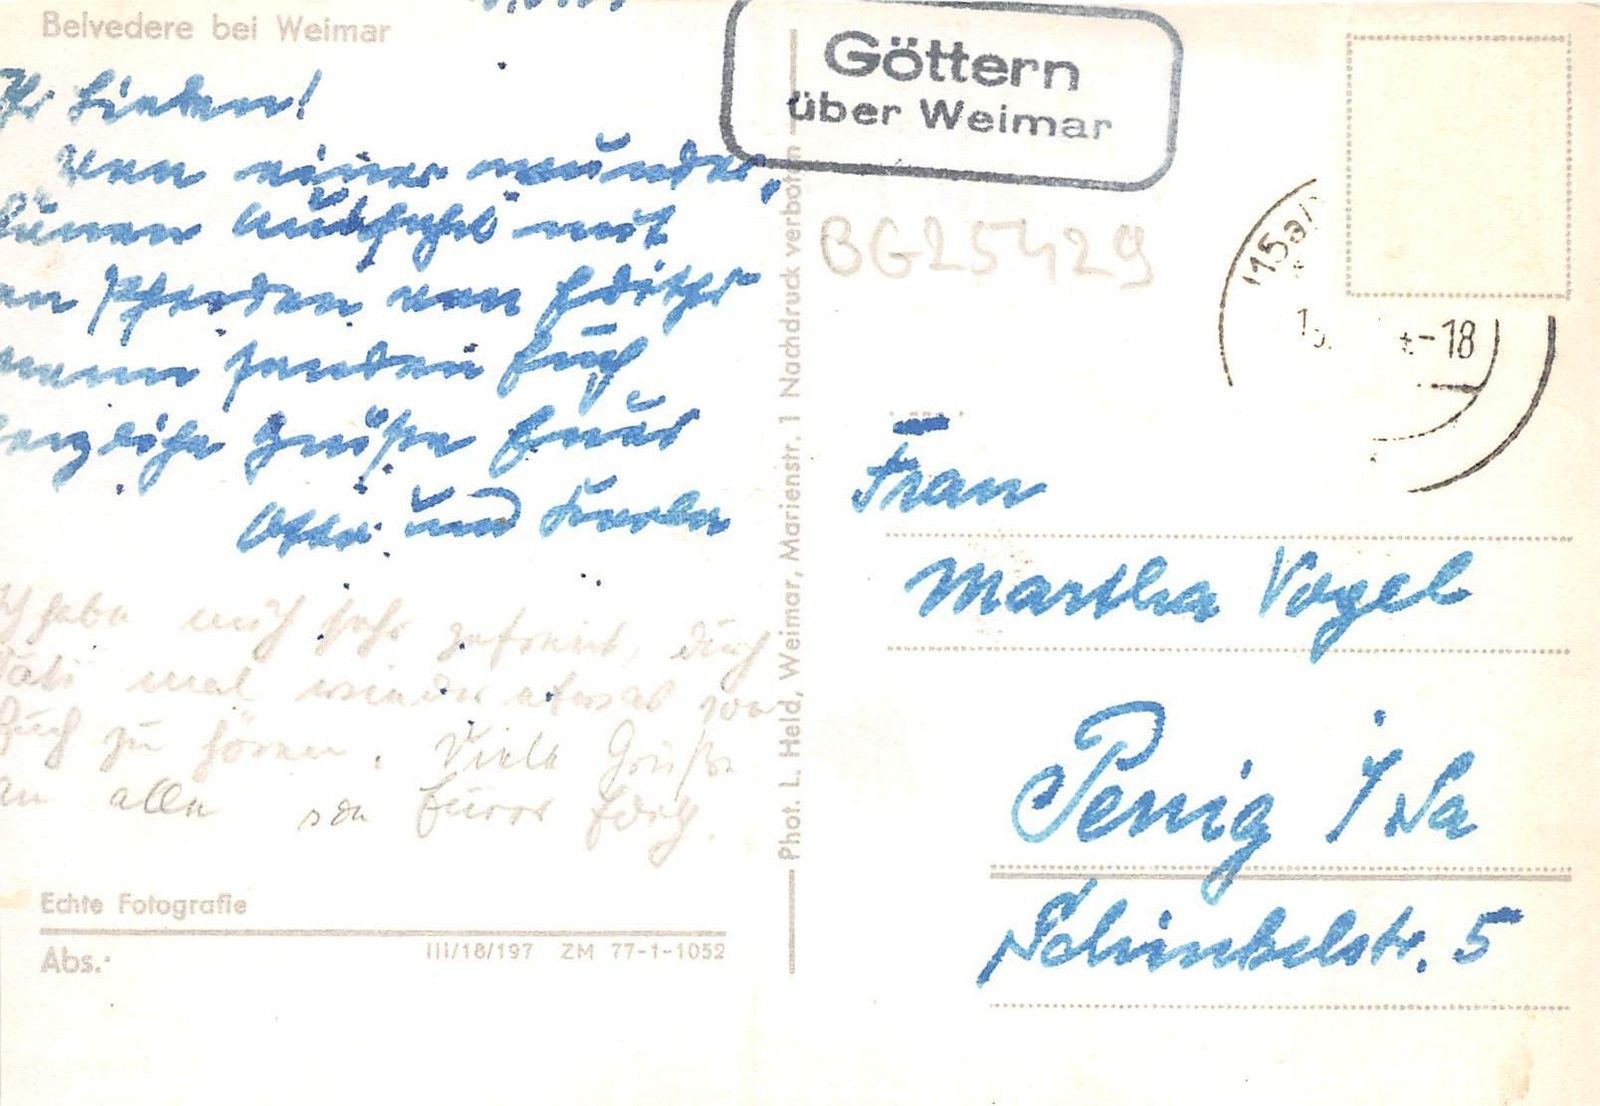 Belvedere bei Weimar
Göttern
über Weimar
Ihr Lieben!
Von einer wunder-
schönen Ausfahrt mit
den Pferden von
senden Euch
herzliche Grüße Eure
Otto und
BG25429
15 -18
Frau
Martha Vogel
Penig i/Sa
Schinkelstr. 5
Ich habe mich sehr gefreut, durch
mal wieder etwas von
Euch zu hören. Viele Grüße
an alle von Eurer
Phot. L. Held, Weimar, Marienstr. 1 Nachdruck verboten
Echte Fotografie
Abs.:
III/18/197 ZM 77-1-1052